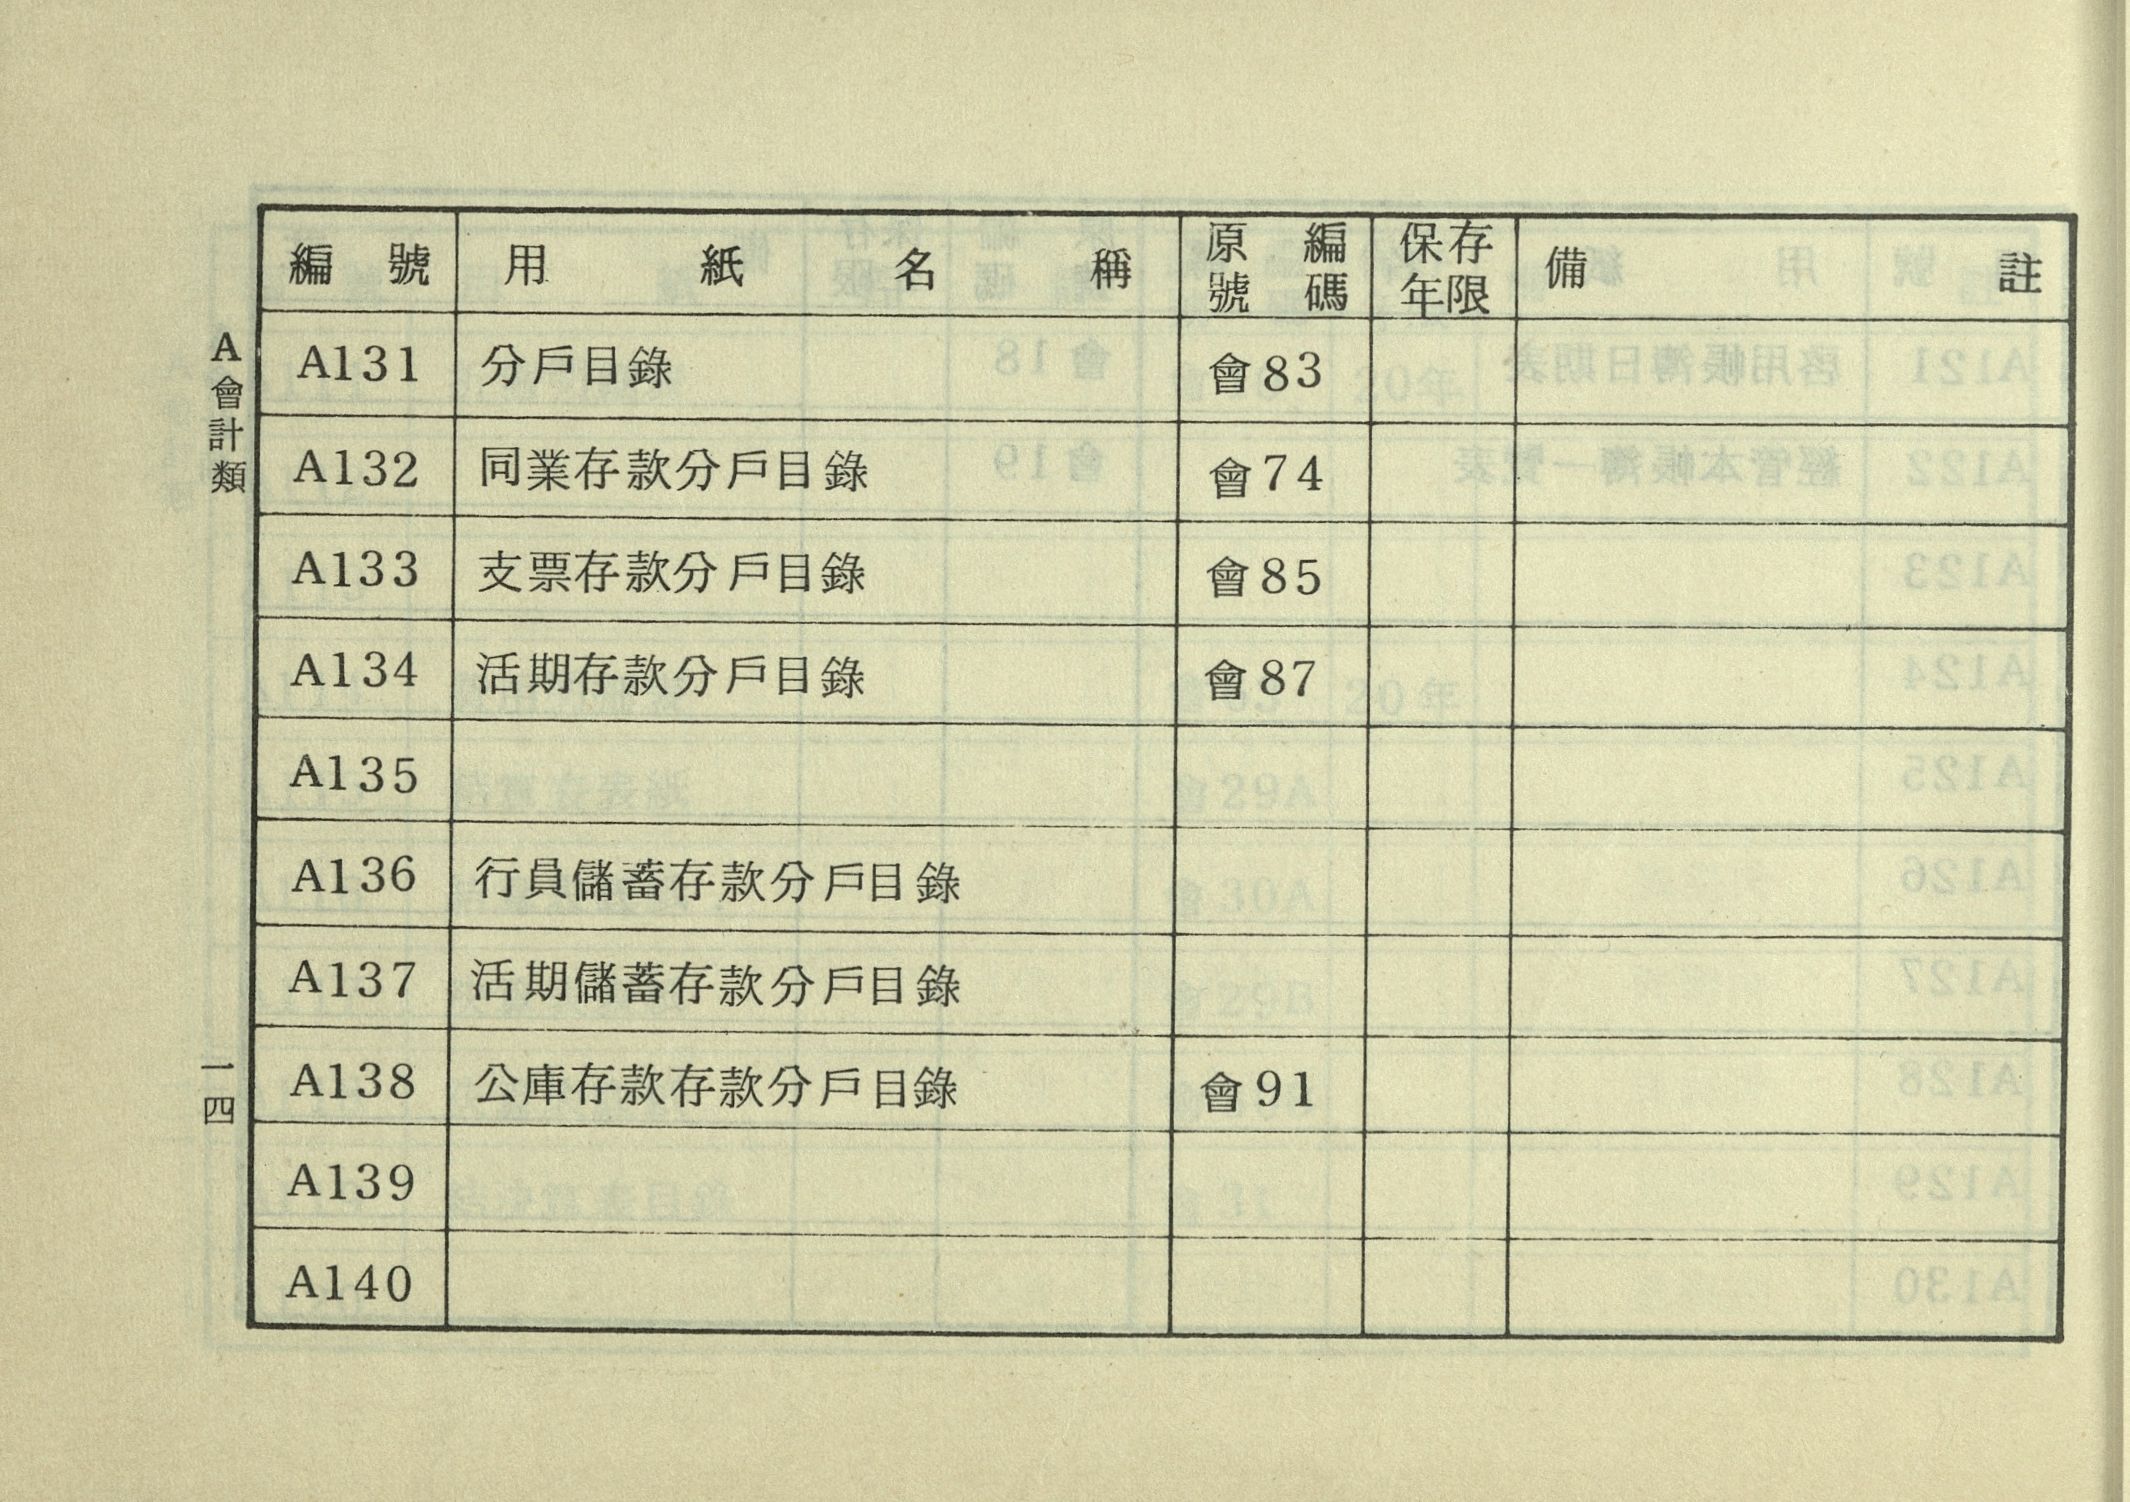 A會計類
編號 用紙名稱 原編號碼 保存年限 備註
A131 分戶目錄 會83
A132 同業存款分戶目錄 會74
A133 支票存款分戶目錄 會85
A134 活期存款分戶目錄 會87
A135
A136 行員儲蓄存款分戶目錄
A137 活期儲蓄存款分戶目錄
A138 公庫存款存款分戶目錄 會91
A139
A140
一四